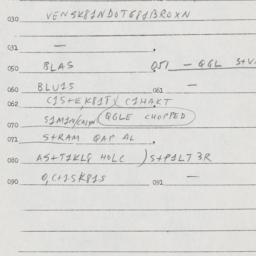 030 VEN5K81NDOT681BROXN
031 —
050 BLAS 051 — QGL S+V
060 BLU15 061 —
062 C15+E,K81TX C1HAKT
070 QGLE CHOPPED
071 S+RAM QAP AL
080 AS+T1KLG HOLC ) S+P1LT 3R
090 O,C+15K815 091 —